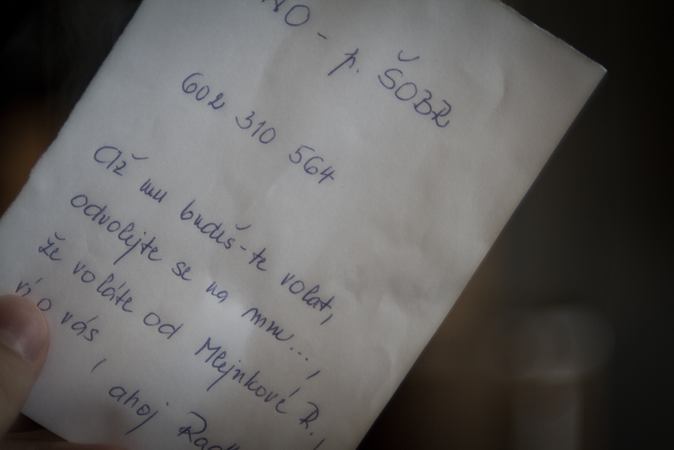 NO - p. ŠOBR
602 310 564
Až mu budeš-te volat,
odvolejte se na mm...,
že voláte od Mlejnkové R.!
ví o vás
, ahoj